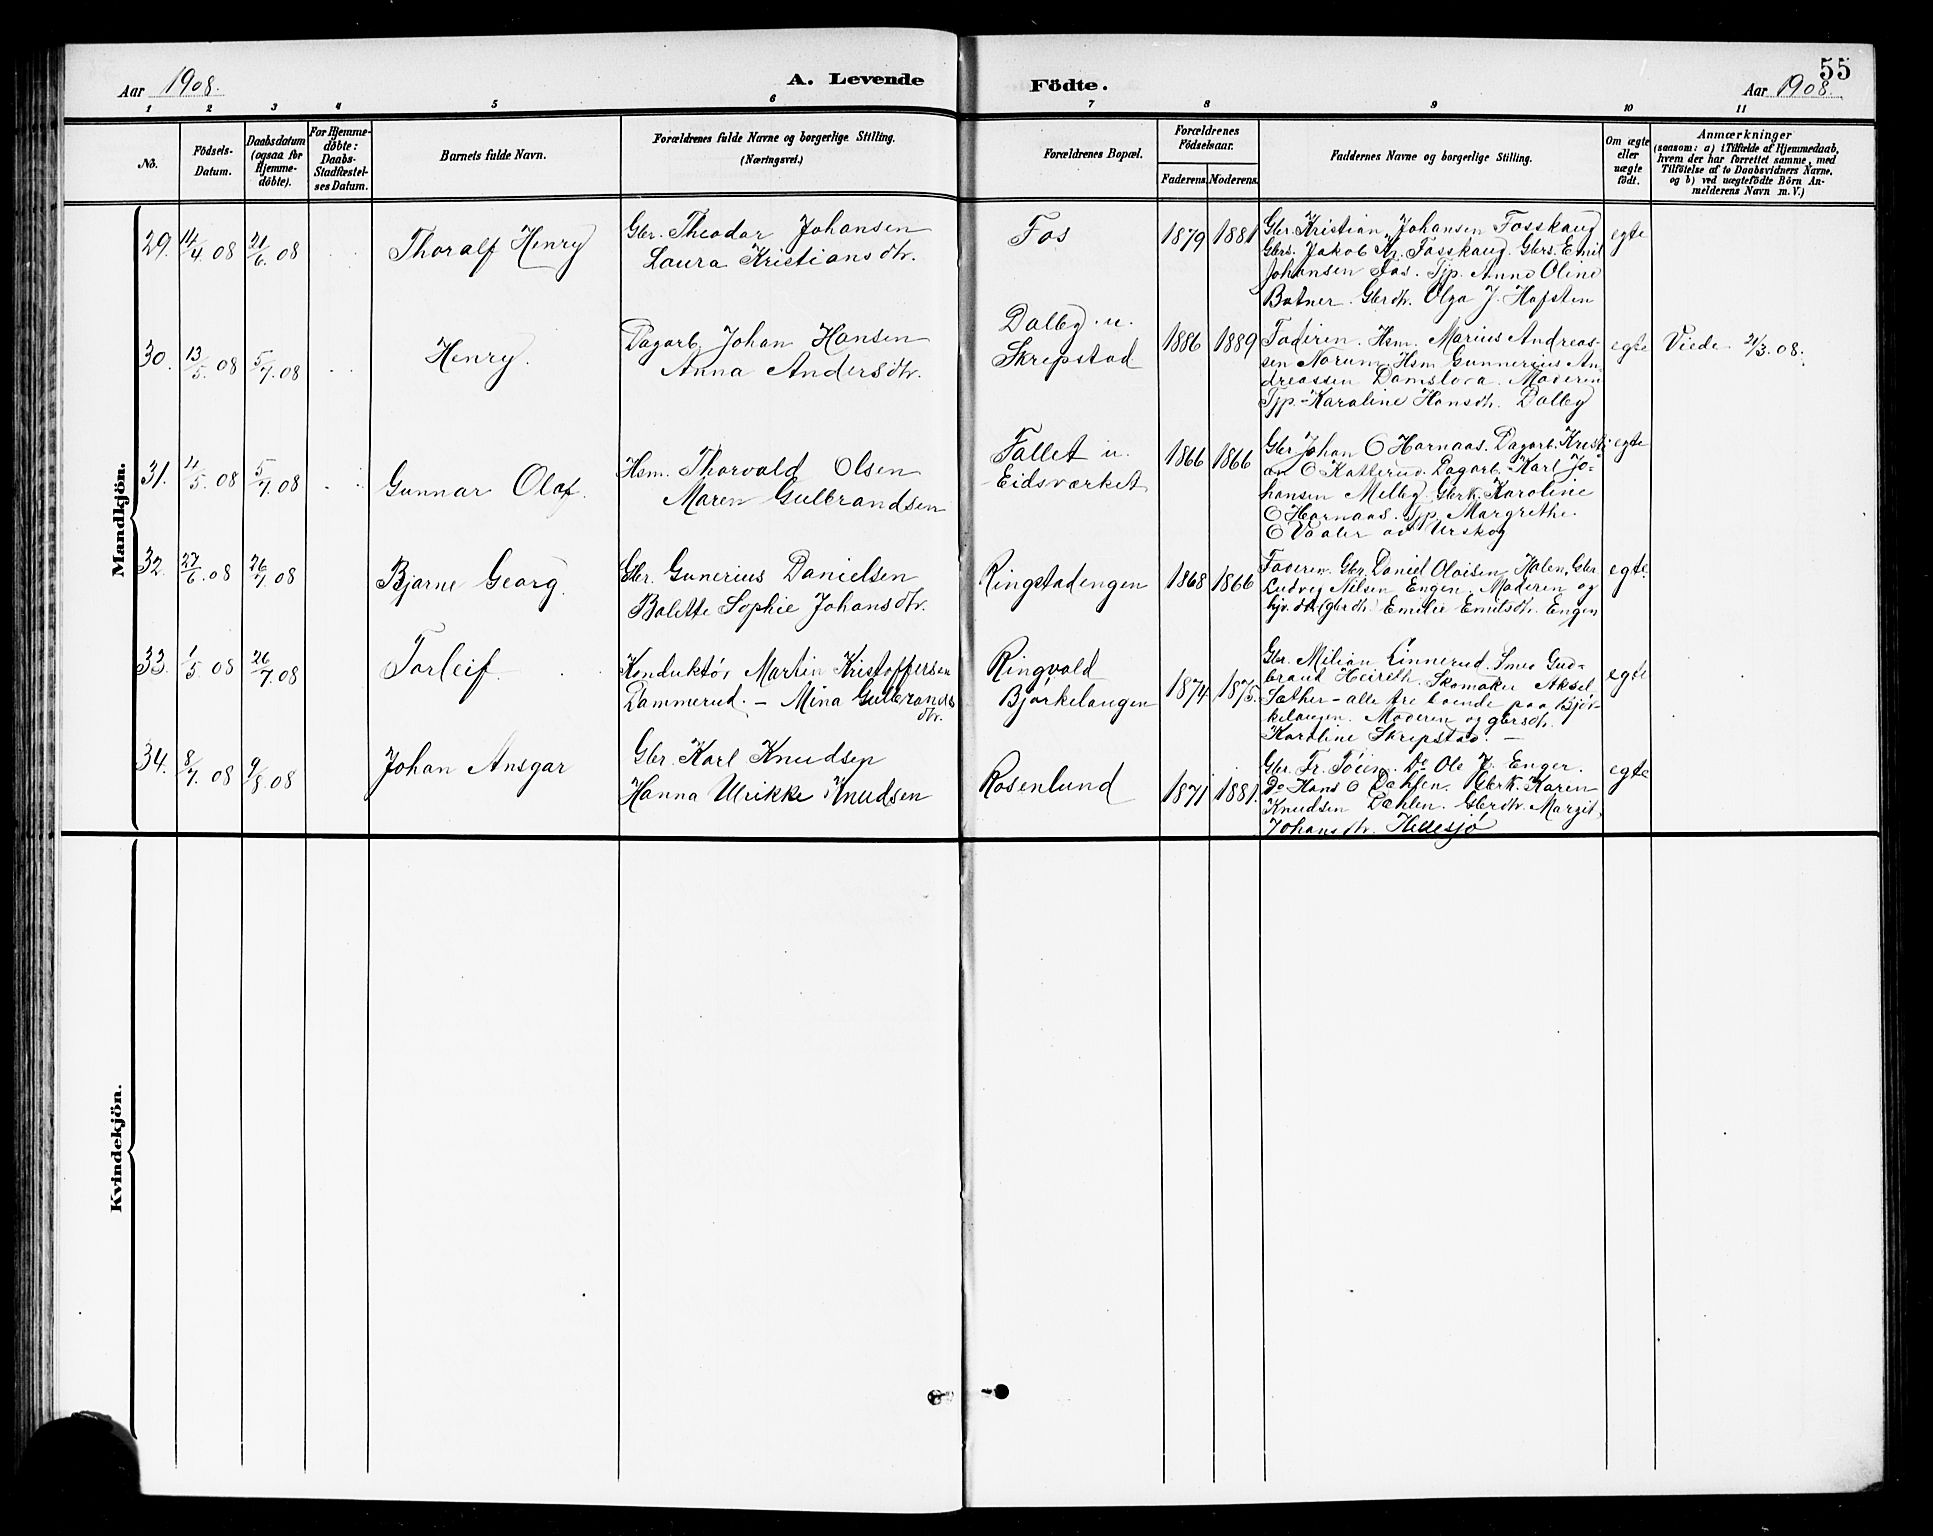 55
Aar 1908.
A. Levende Födte.
Aar 1908.
1 2 3 4 5 6 7 8 9 10 11
No.
Födsels-
Datum.
Daabsdatum
(ogsaa for
Hjemme-
döbte).
For Hjemme-
döbte:
Daabs-
Stadfæstel-
ses Datum.
Barnets fulde Navn.
Forældrenes fulde Navne og borgerlige Stilling.
(Næringsvei.)
Forældrenes Bopæl.
Forældrenes
Födselsaar.
Faderens.
Moderens.
Faddernes Navne og borgerlige Stilling.
Om ægte
eller
uægte
födt.
Anmærkninger
(saasom: a) i Tilfælde af Hjemmedaab,
hvem der har forrettet samme, med
Tilföielse af to Daabsvidners Navne.
og b) ved uægtefödte Börn An-
melderens Navn m. V.)
Mandkjön.
29. 14/4 08 21/6 08
Thoralf Henry
Gbr. Theodor Johansen
Laura Kristiansdtr.
Fos
1879 1881
Gbr. Kristian Johansen Fosskaug
Gbrs. Jakob Kr. Fosskaug. Gbrs. Emil
Johansen Fos. Tjp. Anna Oline
Botner. Gbrdtr. Olga J. Hofsten
egte
30. 13/5. 08 5/7. 08
Henry.
Dagarb. Johan Hansen
Anna Andersdtr.
Dalby u.
Skrepstad
1886 1889
Faderen. Hsm. Marius Andreas-
sen Norum, Hsm Gunnerius An-
dreassen Damslora. Moderen
Tjp. Karoline Hansdtr. Dalby
egte
Viede 21/3. 08.
31. 4/5. 08 5/7. 08
Gunnar Olaf.
Hsm. Thorvald Olsen
Maren Gulbrandsen
Fallet u.
Eidsværket
1866 1866
Gbr Johan O Harnaas. Dagarb. Kristi-
an O Katterud. Dagarb. Karl Jo-
hansen Melby. Gbrk. Karoline
O Harnaas. Tjp. Margrethe
O Vaaler av Urskog
egte
32. 27/6. 08 26/7 08
Bjarne Georg.
Gbr. Gunerius Danielsen
Bolette Sophie Johansdtr.
Ringstadengen
1868 1866
Faderen. Gbr. Daniel Olaisen Holen, Gbr.
Ludvig Nilsen Engen. Moderen og
hjv. dtr (gbrdtr) Emilie Emilsdtr. Engen
egte.
33. 1/5. 08 26/7. 08
Torleif.
Konduktør Martin Kristoffersen
Dammerud. – Mina Gulbrands
dtr.
Ringvold
Bjørkelangen
1874 1875.
Gbr. Milian Linnerud. Smed Gud-
brand Heireth. Skomaker Aksel
Sæther – alle tre boende paa Bjør-
kelangen. Moderen og gbrsdtr.
Karoline Skrepstad. –
egte
34. 8/7. 08 9/8. 08
Johan Ansgar
Gbr. Karl Knudsen
Hanna Ulrikke Knudsen
Rosenlund
1871 1881.
Gbr. Fr. Do Ole J. Enger.
Do Hans O Dæhlen. Gbrk. Karen
Knudsen Dæhlen. Gbrdtr. Margit
Johansdtr. Hellesjø
egte
Kvindekjön.